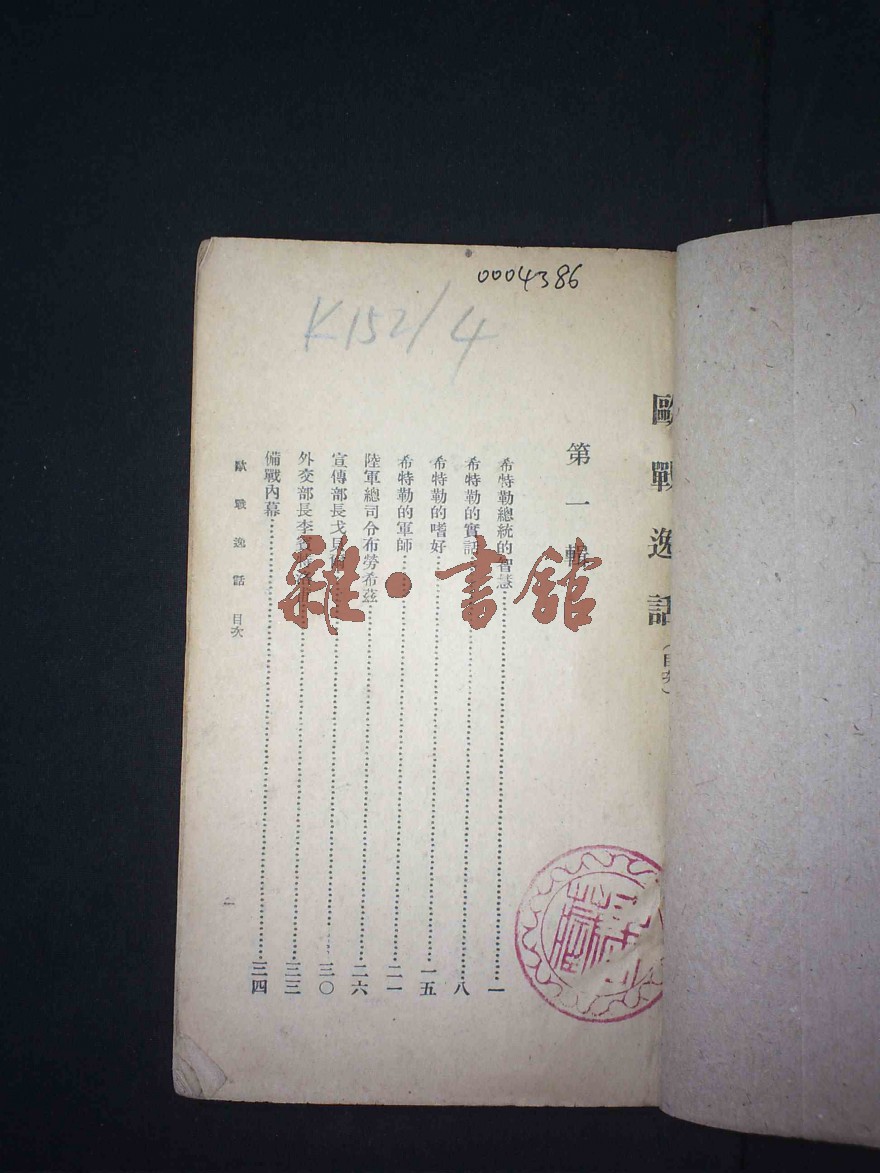 0004386
K152/4
歐戰逸話
（目次）
第一輯
希特勒總統的智慧 一
希特勒的實話 八
希特勒的嗜好 一五
希特勒的軍師 二一
陸軍總司令布勞希茲 二六
宣傳部長戈貝爾 三〇
外交部長李 三三
備戰內幕 三四
歐戰逸話 目次
雜·書館